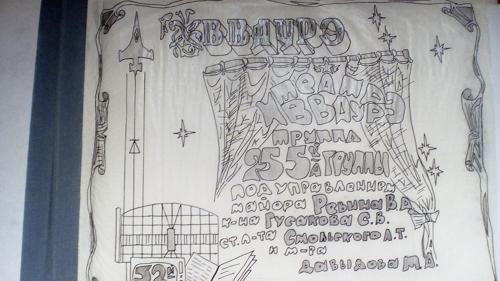 КВВАУРЭ
театр
КВВАУРЭ
труппа
255 УЧ ГРУППЫ
под управлением
майора Ревина В.В
к-на Гусакова С.В.
ст. л-та Смольского Л.Т.
и м-ра
Давыдова М.Д.